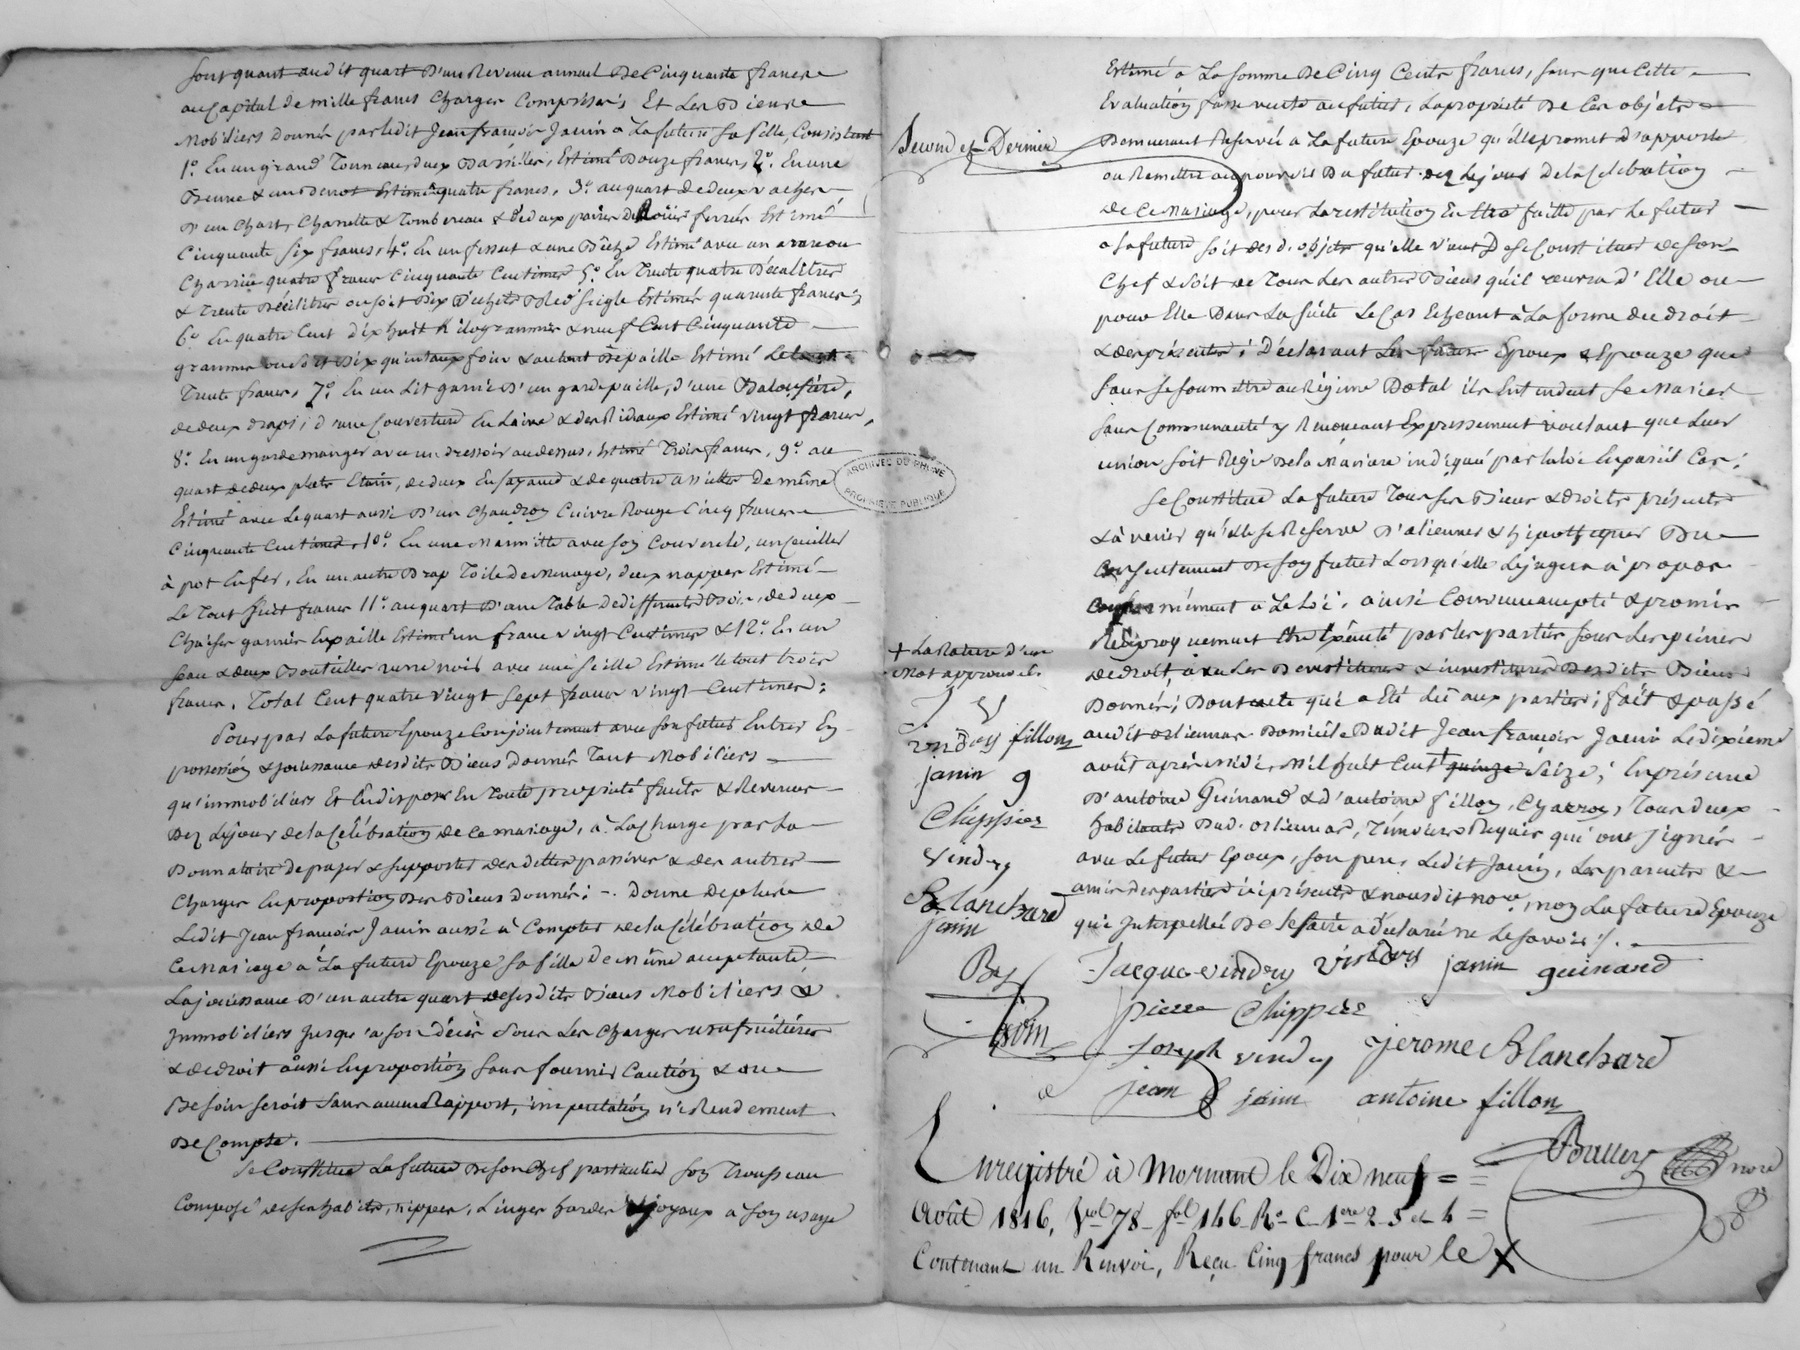 sont quant audit quart d'un Revenu annuel de Cinquante francs
au Capital de mille francs Charges Comprises Et Les Biens
Mobiliers donnés par ledit Jean françois Janin a La future sa fille Consistent
1º. En un grand Tonneau deux Barilles, Estimé Douze francs, 2º. En une
Benne & un Benot Estimé quatre francs, 3º. au quart de deux vaches
D'un Chart, Charrette & Tombereau & de deux paires de Roües ferrées Estimé
Cinquante six francs, 4º. En un fessout & une Bêche Estimé avec un araire ou
Charrüe quatre francs Cinquante Centimes 5º. En Trente quatre Décalitres
& Trente Décilitres ou soit Dix Bichets Bled seigle Estimés quarante francs
6º. En quatre Cent dix huit Kilogrammes & neuf Cent Cinquante
grammes ou soit Dix quintaux foin & autant De paille Estimé
Trente francs, 7º. En un Lit garni D'un gardepaille, d'une Balouffière,
de deux draps, d'une Couverture En Laine & des Rideaux Estimé vingt francs,
8º. En un gardemanger avec un dressoir au dessus, Estimé Trois francs, 9º. au
quart de deux plats Etain, de deux & de quatre assiettes De même
Estimé avec Le quart aussi D'un Chaudron Cuivre Rouge Cinq francs
Cinquante Centimes, 10º. En une Marmitte avec son Couvercle, un Cueiller
à pot En fer, En un autre Drap Toile de Menage, deux nappes Estimé
Le Tout huit francs 11º. au quart D'une Table De differents Bois, de deux
Chaises garnies En paille Estimé un franc vingt Centimes & 12º. En un
seau & deux Bouteilles verre noir avec une seille Estimé le tout trois
francs. Total Cent quatre vingt sept francs vingt Centimes;
Pour par La future Epouze Conjointement avec son futur Entrer En
possession & jouissance desdits Biens donnés Tant Mobiliers
qu'immobiliers Et En disposer En Toute propriété fruits & Revenus
Dez Le jour de la Célébration de ce mariage, à La charge par La
Donnataire de payer & supporter des dettes passives & des autres
Charges En proportion Des Biens donnés; donne De plus
Ledit Jean françois Janin aussi à Compter de la Célébration de
Ce Mariage à La future Epouze sa fille De même acceptante
La jouissance D'un autre quart desdits Biens Mobiliers &
Immobiliers Jusqu'à son décès sous Les charges usufruitières
& de droit aussi En proportion sans fournir Caution & sans
Besoin seroit sans aucun Rapport, imputation ni Rendement
De Compte.
Se Constitue La future De son Chef particulier son Trousseau
Composé de ses habits, nippes, Linges hardes & joyaux à son usage
ARCHIVES DU RHÔNE
PROPRIÉTÉ PUBLIQUE
Estimé à La somme De Cinq Cents francs, sans que Cette
Evaluation fasse vente au futur, La propriété De Ces objets
Second et Dernier
Demeurant Reservée à La future Epouze qu'elle promet d'apporter
ou Remettre au pouvoir Du futur dez Le jour De la Celebration
de Ce Mariage, pour La restitution En être faitte par Le futur
a la future soit des d. objets qu'elle vient De se Constituer de son
Chef & soit de Tous Les autres Biens qu'il recevra d'Elle ou
pour Elle Dans La suite Le Cas Echeant à La forme du droit
& des présentes; Déclarant Les futurs Epoux & Epouze que
sans se soumettre au Régime Dotal ils Entendent se Marier
sans Communauté y Renonçant Expressement voulant que Leur
union soit Régie De la Manière indiquée par la Loi En pareil Cas;
Se Constitue La future Tous ses Biens & droits présents
& à venir qu'elle se Reserve D'aliener & hipothequer Du
Consentement De son futur Lorsqu'elle Le jugera à propos
Conformément à La Loi. ainsi Convenu accepté & promis
Réciproquement Etre Exécuté par les parties sous Les peines
de droit, avec Les Devestitures & investitures Desdits Biens
Donnés; Dont acte qui a Eté Lû aux parties; fait & passé
+ La Rature d'un
Mot approuvée
J V
vindry fillon
janin g
Chippier
Vindry
Blanchard
janin
audit orlienas Domicile Dudit Jean françois Janin Le dixième
août après midi, Mil huit Cent + quinze Seize; En présence
D'antoine Guinand & d'antoine fillon, Charron, Tous deux
habitants Dud. orlienas, Témoins Requis qui ont signés
avec Le futur Epoux, son pere, Ledit Janin, Les parents &
amis des parties ici présents & nous dit nore, non La future Epouze
qui Interpellée De Le faire a déclaré ne Le savoir /.
Jacque vindry vindry janin guinand
pierre Chippier
Joseph vindry Jerome Blanchard
jean janin antoine fillon
Enregistré à Mornant le Dix neuf
Août 1816, Vol 78 fol 146 Ro C. 1ere 2. 3 et 4
Contenant un Renvoi, Reçu Cinq francs pour le X